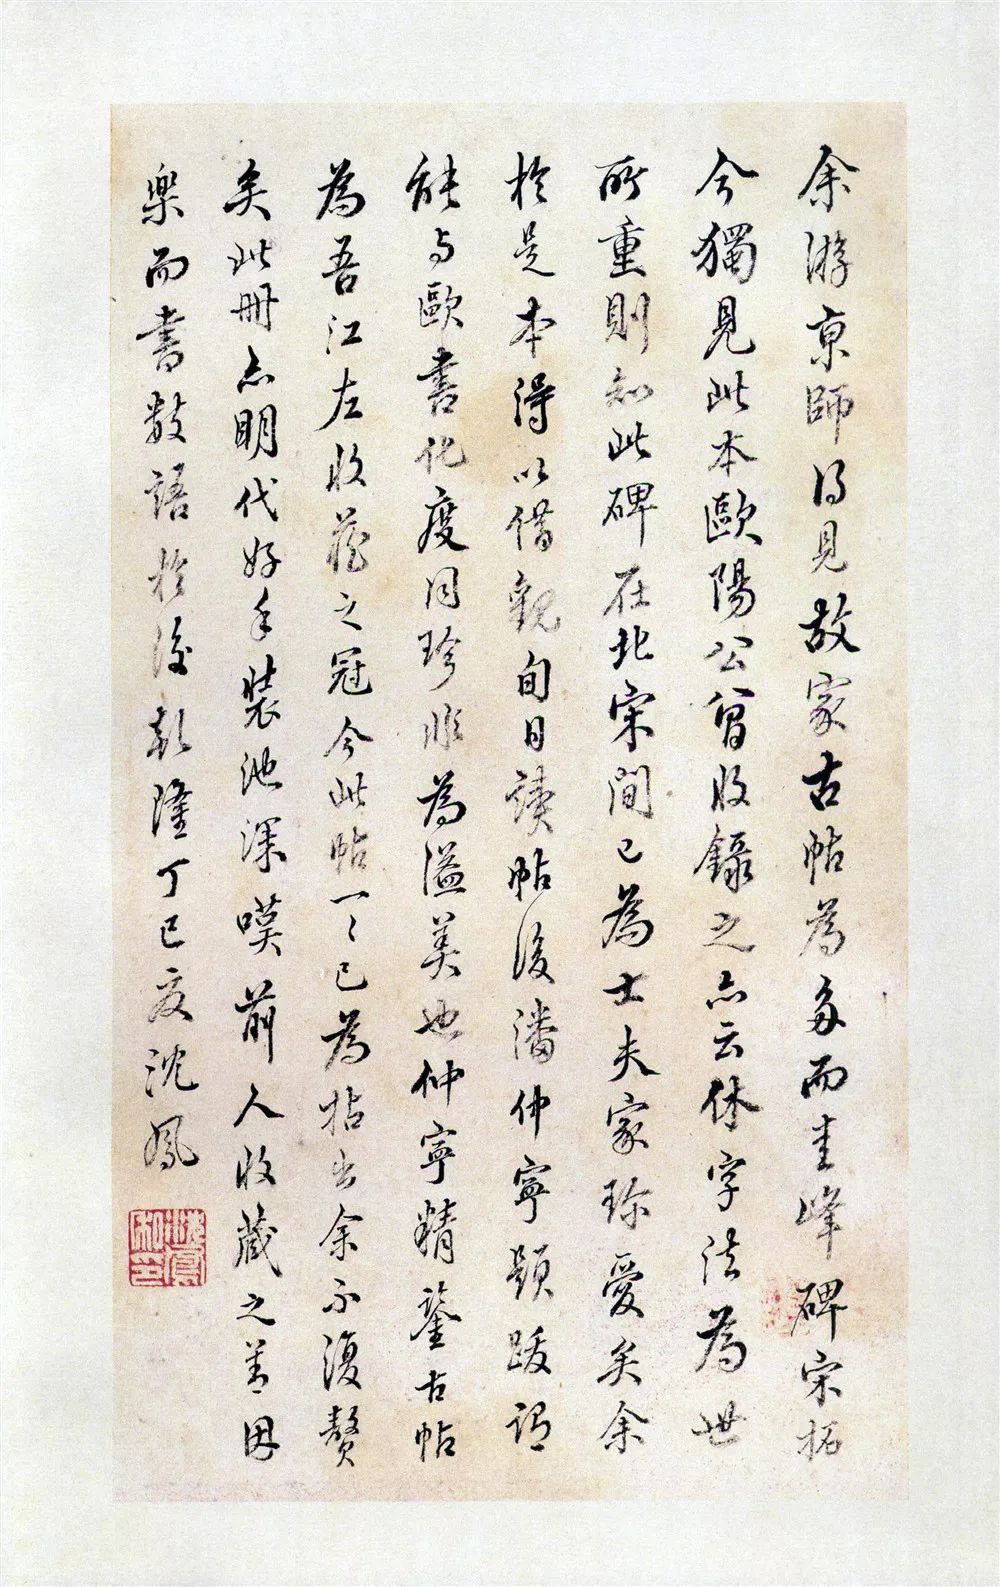 余游京師得見故家古帖為多而圭峰碑宋拓
今獨見此本歐陽公曾收錄之亦云休字法為世
所重則知此碑在北宋間已為士夫家珍愛矣余
於是本得以借觀旬日讀帖後潘仲寧題跋謂
能与歐書化度同珍非為溢美也仲寧精鑒古帖
為吾江左收藏之冠今此帖一〻已為拈出余不復贅
矣此冊亦明代好手裝池深嘆前人收藏之善因
樂而書數語於後乾隆丁巳夏沈鳳
沈鳳私印